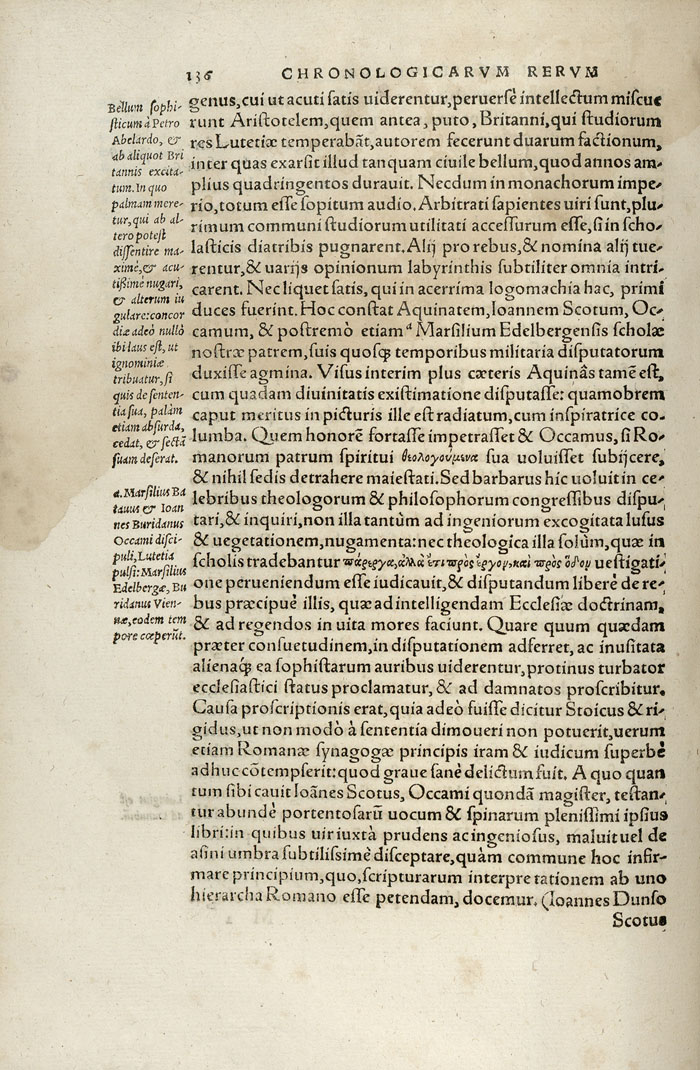 136
CHRONOLOGICARVM RERVM
Bellum sophi-
sticum à Petro
Abelardo, &
ab aliquot Bri
tannis excita-
tum. In quo
palmam mere-
tur, qui ab al-
tero potest
dissentire ma-
ximè, & acu-
tißimè nugari,
& alterum iu
gulare: concor
diæ adeò nullò
ibi laus est, ut
ignominiæ
tribuatur, si
quis de senten-
tia sua, palàm
etiam absurda,
cedat, & sectã
suam deserat.
a. Marsilius Ba
tauus & Ioan
nes Buridanus
Occami disci-
puli, Lutetia
pulsi: Marsilius
Edelbergæ, Bu
ridanus Vien-
næ, eodem tem
pore cœperũt.
genus, cui ut acuti satis uiderentur, peruersè intellectum miscue
runt Aristotelem, quem antea, puto, Britanni, qui studiorum
res Lutetiæ temperabãt, autorem fecerunt duarum factionum,
inter quas exarsit illud tanquam ciuile bellum, quod annos am-
plius quadringentos durauit. Necdum in monachorum impe-
rio, totum esse sopitum audio. Arbitrati sapientes uiri sunt, plu-
rimum communi studiorum utilitati accessurum esse, si in scho-
lasticis diatribis pugnarent. Alij pro rebus, & nomina alij tue-
rentur, & uarijs opinionum labyrinthis subtiliter omnia intri-
carent. Nec liquet satis, qui in acerrima logomachia hac, primi
duces fuerint. Hoc constat Aquinatem, Ioannem Scotum, Oc-
camum, & postremò etiam a Marsilium Edelbergensis scholæ
nostræ patrem, suis quosq; temporibus militaria disputatorum
duxisse agmina. Visus interim plus cæteris Aquinãs tamẽ est,
cum quadam diuinitatis existimatione disputasse: quamobrem
caput meritus in picturis ille est radiatum, cum inspiratrice co-
lumba. Quem honorẽ fortasse impetrasset & Occamus, si Ro-
manorum patrum spiritui θεολογούμενα sua uoluisset subijcere,
& nihil sedis detrahere maiestati. Sed barbarus hic uoluit in ce-
lebribus theologorum & philosophorum congressibus dispu-
tari, & inquiri, non illa tantùm ad ingeniorum excogitata lusus
& uegetationem, nugamenta: nec theologica illa solùm, quæ in
scholis tradebantur πάρεργα, ἀλλὰ ἔτι πρὸς ἔργον, καὶ πρὸς ὅδου uestigati-
one perueniendum esse iudicauit, & disputandum liberè de re-
bus præcipuè illis, quæ ad intelligendam Ecclesiæ doctrinam,
& ad regendos in uita mores faciunt. Quare quum quædam
præter consuetudinem, in disputationem adferret, ac inusitata
alienaq; ea sophistarum auribus uiderentur, protinus turbator
ecclesiastici status proclamatur, & ad damnatos proscribitur.
Causa proscriptionis erat, quia adeò fuisse dicitur Stoicus & ri-
gidus, ut non modò à sententia dimoueri non potuerit, uerum
etiam Romanæ synagogæ principis iram & iudicum superbè
adhuc cõtempserit: quod graue sanè delictum fuit. A quo quan
tum sibi cauit Ioãnes Scotus, Occami quondã magister, testan-
tur abundè portentosarũ uocum & spinarum plenissimi ipsius
libri: in quibus uir iuxtà prudens ac ingeniosus, maluit uel de
asini umbra subtilissimè disceptare, quàm commune hoc infir-
mare principium, quo, scripturarum interpretationem ab uno
hierarcha Romano esse petendam, docemur. (Ioannes Dunso
Scotus